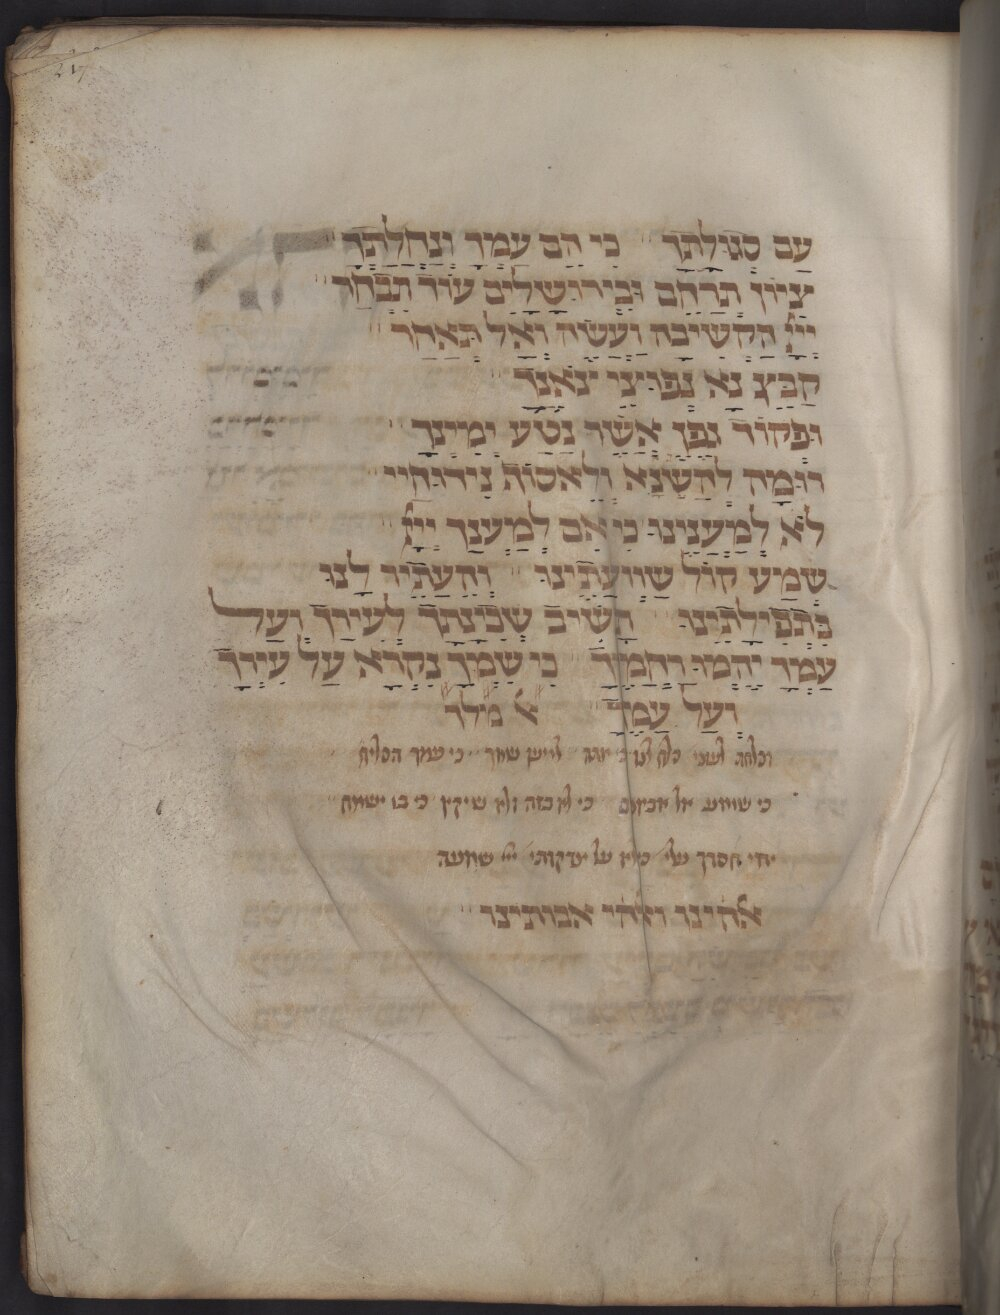 217
עַם סְגוּלָּתָךְ כִּי הֵם עַמְּךָ וְנַחֲלָתֶךָ
צִיּוֹן תְּרַחֵם וּבִירוּשָׁלַיִם עוֹד תִּבְחַר
יְיָ הַקְשִׁיבָה וַעֲשֵׂה וְאַל תְּאַחַר
קַבֵּץ נָא נְפוּצֵי צֹאנֶךָ
וּפְקוֹד גֶּפֶן אֲשֶׁר נָטַע יְמִינֶךָ
רוּמָה לְהִשָּׂנֵא וְלֶאֱסוֹף נִידּוּחַיי
לֹא לְמַעֲנֵינוּ כִּי אִם לְמַעַנְךָ יְיָ
שְׁמַע קוֹל שַׁוְועָתֵינוּ וְהֵעָתֵיר לָנוּ
בִּתְפִילָתֵינוּ הָשֵׁיב שְׁבִיצָתָךְ לְעִירָךְ וְעַל
עַמְּךָ יֶהֱמוּ רַחֲמֶיךָ כִּי שִׁמְךָ נִקְרָא עַל עִירֶךָ
וְעַל עַמֶּךָ א מלך
כי שומע אל אביונים כי לא בזה ולא שיקץ כי בו ישמח
יהי חסדך עלי
אלהינו ואלהי אבותינו